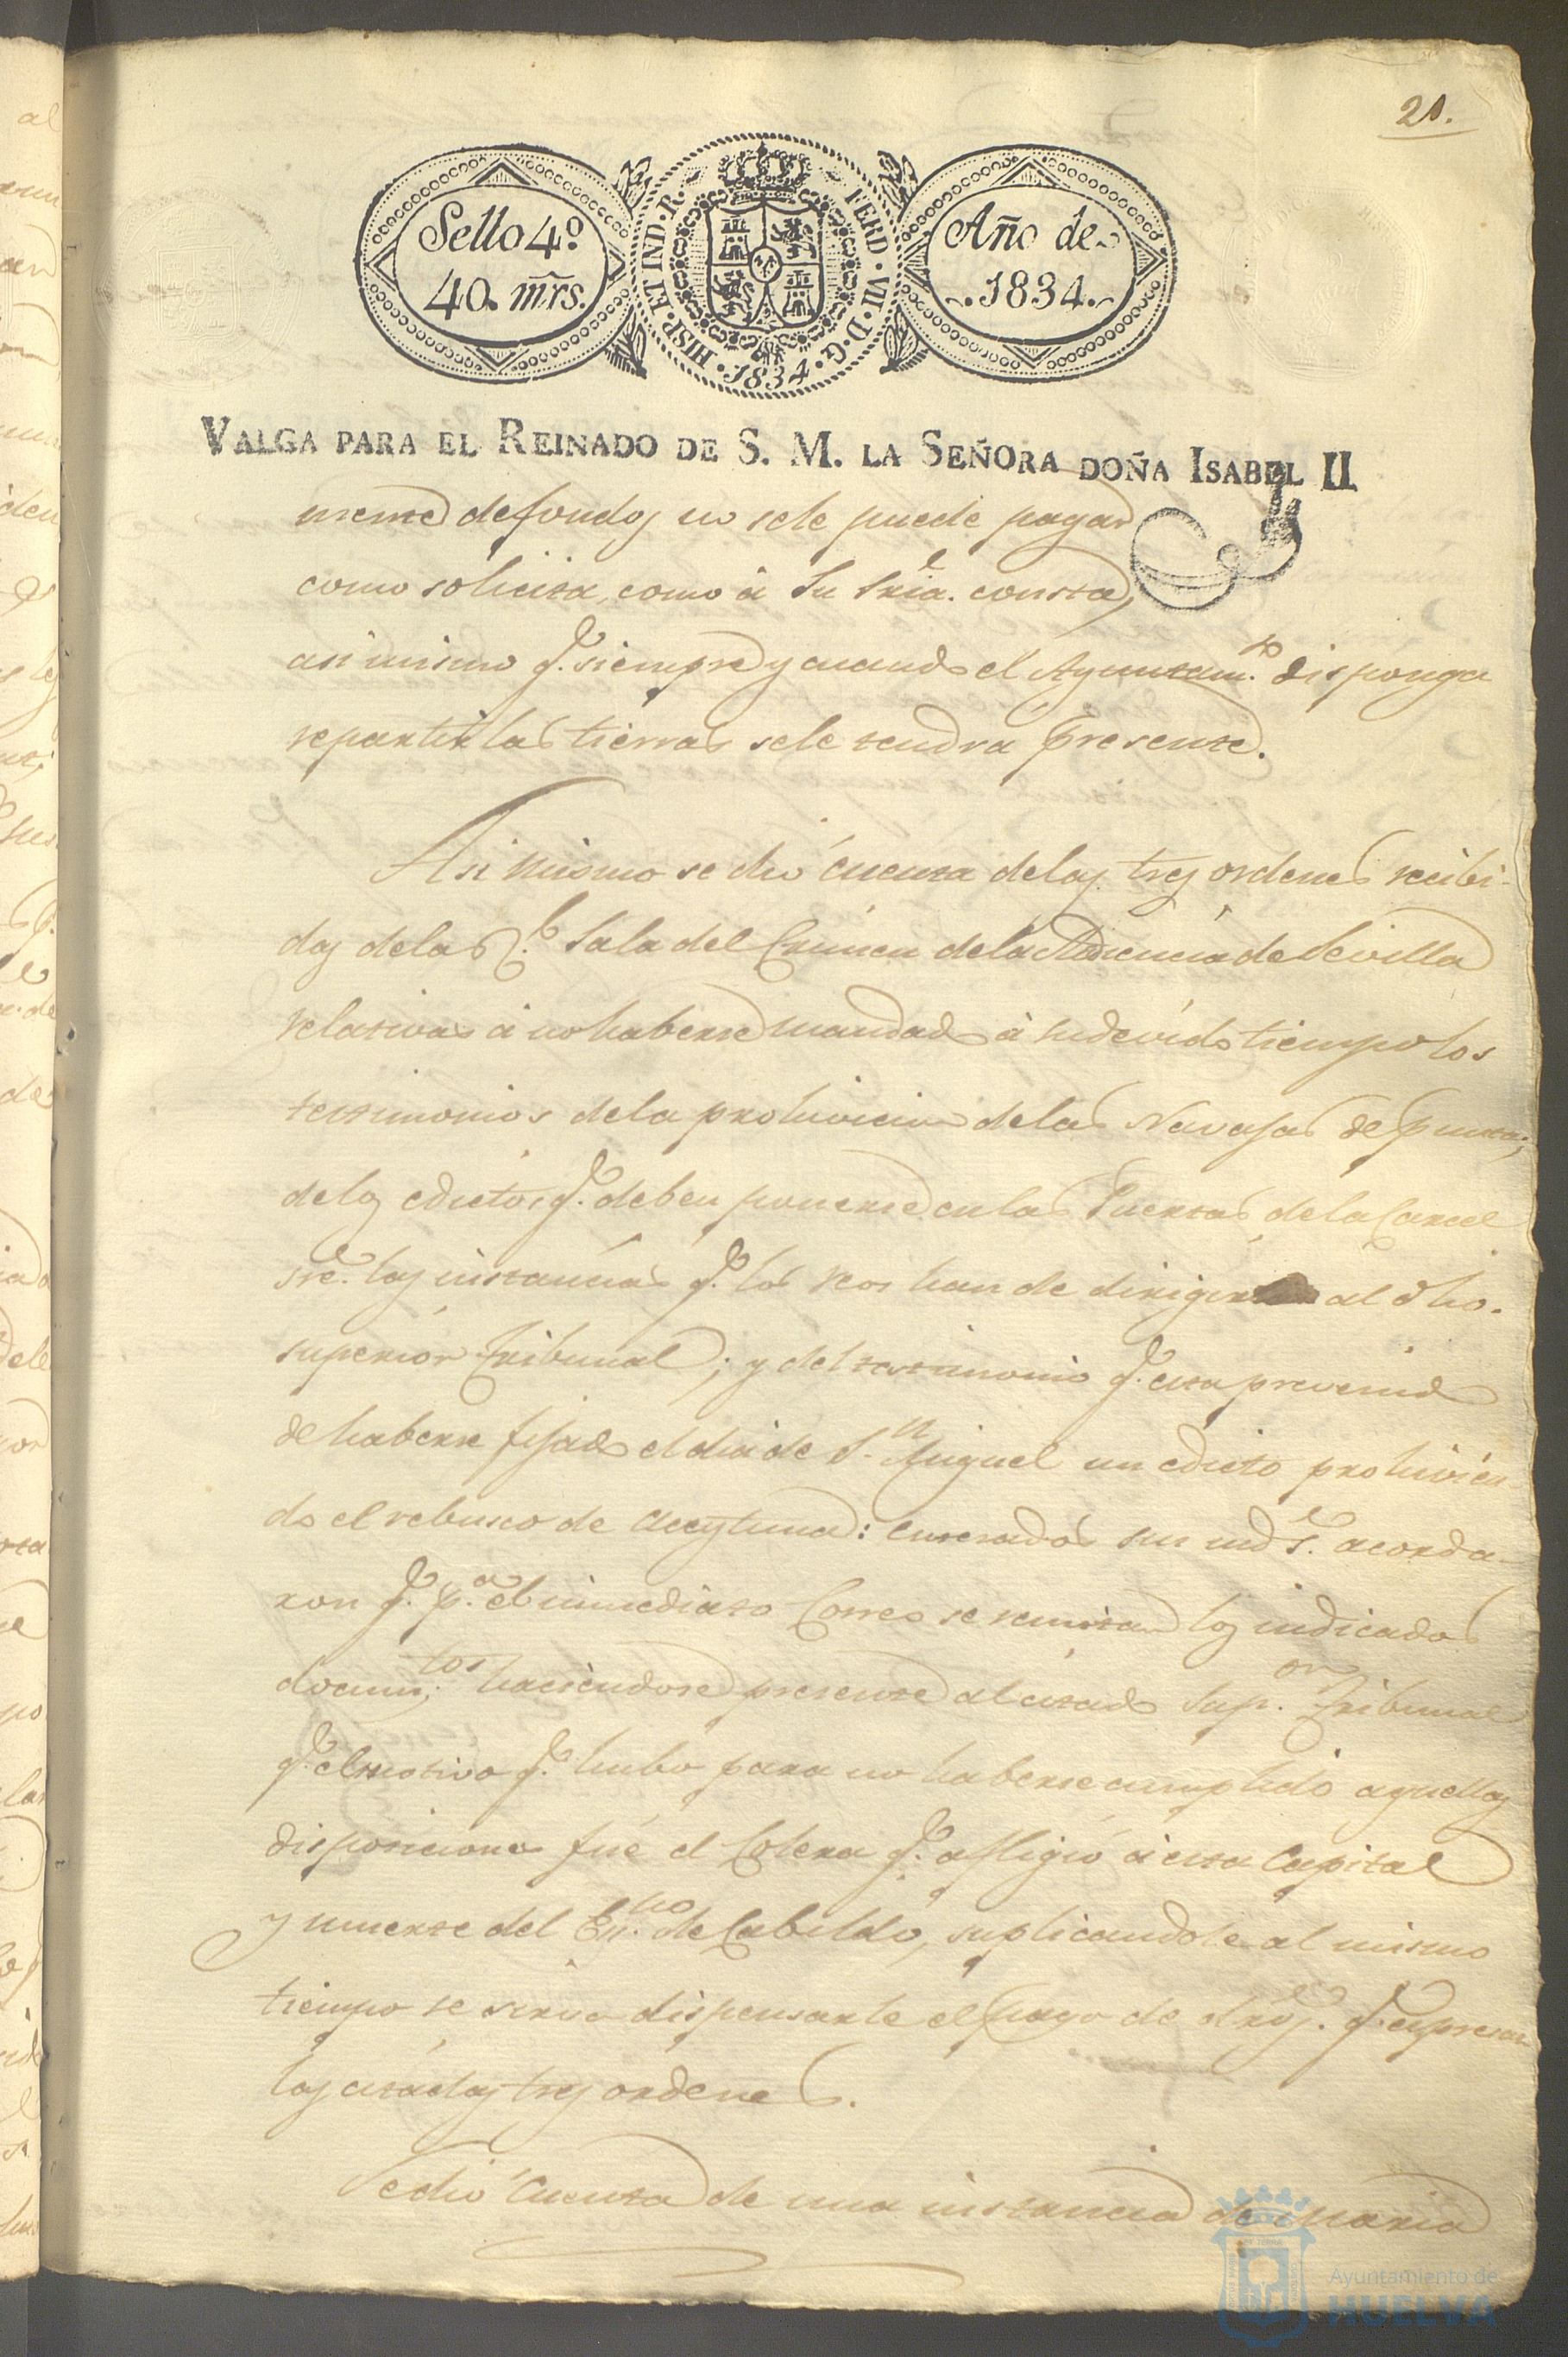 21.
Sello 4º
40. mrs.
HISP. ET IND. R. FERD. VII. D. G. 1834.
Año de
1834.
VALGA PARA EL REINADO DE S. M. LA SEÑORA DOÑA ISABEL II
mente de fondos no sele puede pagar
como solicita, como á Su Sria. consta,
asi mismo q.e siempre y cuando el Ayuntam.to disponga
repartir las tierras sele tendra presente.
Asi mismo se dió cuenta delas tres ordenes recibi-
das dela R.l Sala del Crimen dela Audiencia de Sevilla
relativas á no haberse mandado á su devido tiempo los
testimonios dela prohivicion delas Navajas de punta;
delos edictos q.e deben ponerse en las Puertas dela Carcel
sre. las instancias q.e los reos han de dirigir al dho.
superior Tribunal; y del testimonio q.e esta prevenido
de haberse fijado el dia de S.n Miguel un edicto prohivien-
do el rebusco de Aceytuna: enterados sus mds. acorda-
ron q.e p.a el inmediato Correo se remitan los indicados
docum.tos haciendose presente al citado Sup.or Tribunal
q.e el motivo q.e hubo para no haberse cumplido aquellas
disposiciones fué el Colera q.e afligió á esta Capital
y muerte del Es.no de Cabildo, suplicandole al mismo
tiempo se sirva dispensarle el pago de dros. q.e expresan
las citadas tres ordenes.
Se dió Cuenta de una instancia de Maria
Ayuntamiento de
HUELVA